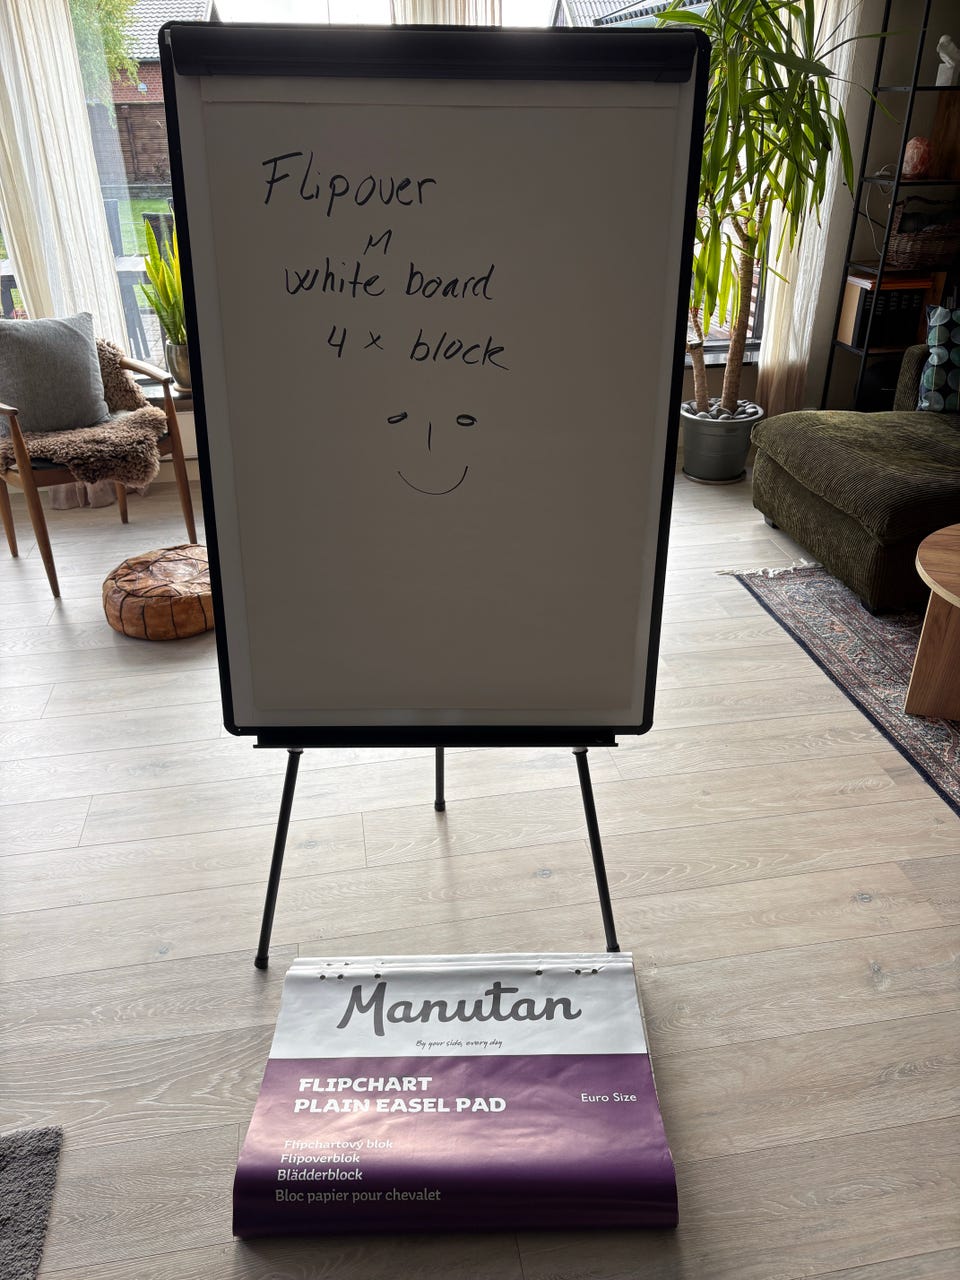 Flipover
M
white board
4 x block
Manutan
By your side, every day
FLIPCHART
PLAIN EASEL PAD
Euro Size
Flipchartový blok
Flipoverblok
Blädderblock
Bloc papier pour chevalet